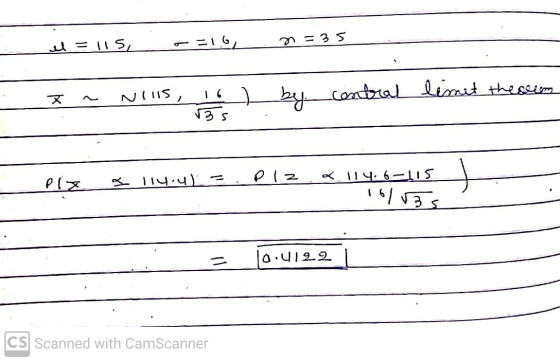 μ = 115, σ = 16, n = 35
x̄ ~ N(115, 16/√35) by central limit theorem
P(x̄ < 114.4) = P(z < 114.6-115 / 16/√35)
= 0.4122
CS Scanned with CamScanner